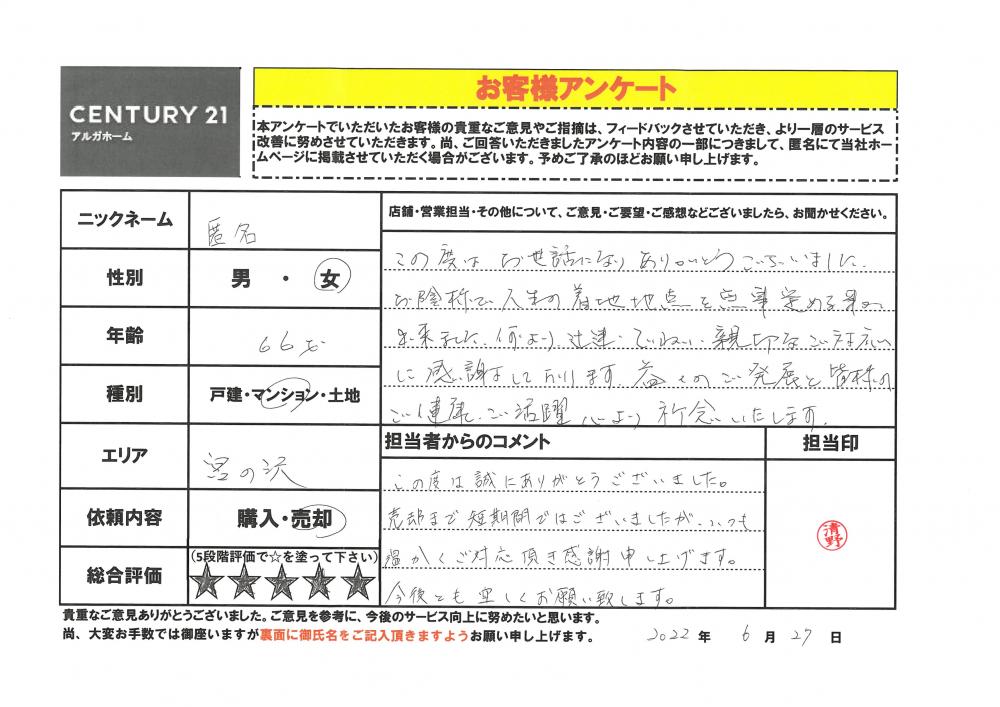 CENTURY 21
アルガホーム
お客様アンケート
本アンケートでいただいたお客様の貴重なご意見やご指摘は、フィードバックさせていただき、より一層のサービス
改善に努めさせていただきます。尚、ご回答いただきましたアンケート内容の一部につきまして、匿名にて当社ホー
ムページに掲載させていただく場合がございます。予めご了承のほどお願い申し上げます。
ニックネーム
匿名
性別
男・女
年齢
66才
種別
戸建・マンション・土地
エリア
宮の沢
依頼内容
購入・売却
総合評価
(5段階評価で☆を塗って下さい)
★★★★★
店舗・営業担当・その他について、ご意見・ご要望・ご感想などございましたら、お聞かせください。
この度は お世話になり ありがとうございました。
お陰様で 人生の 着地地点を 定める事が
出来ました。何より 辻達 ていねい 親切なご対応
に感謝して 居ります 益々のご発展と 皆様の
ご健康 ご活躍 心より 祈念いたします。
担当者からのコメント
この度は誠にありがとうございました。
売却まで短期間ではございましたが、いつも
温かくご対応頂き感謝申し上げます。
今後とも宜しくお願い致します。
担当印
清野
貴重なご意見ありがとうございました。ご意見を参考に、今後のサービス向上に努めたいと思います。
尚、大変お手数では御座いますが裏面に御氏名をご記入頂きますようお願い申し上げます。
2022 年 6 月 27 日